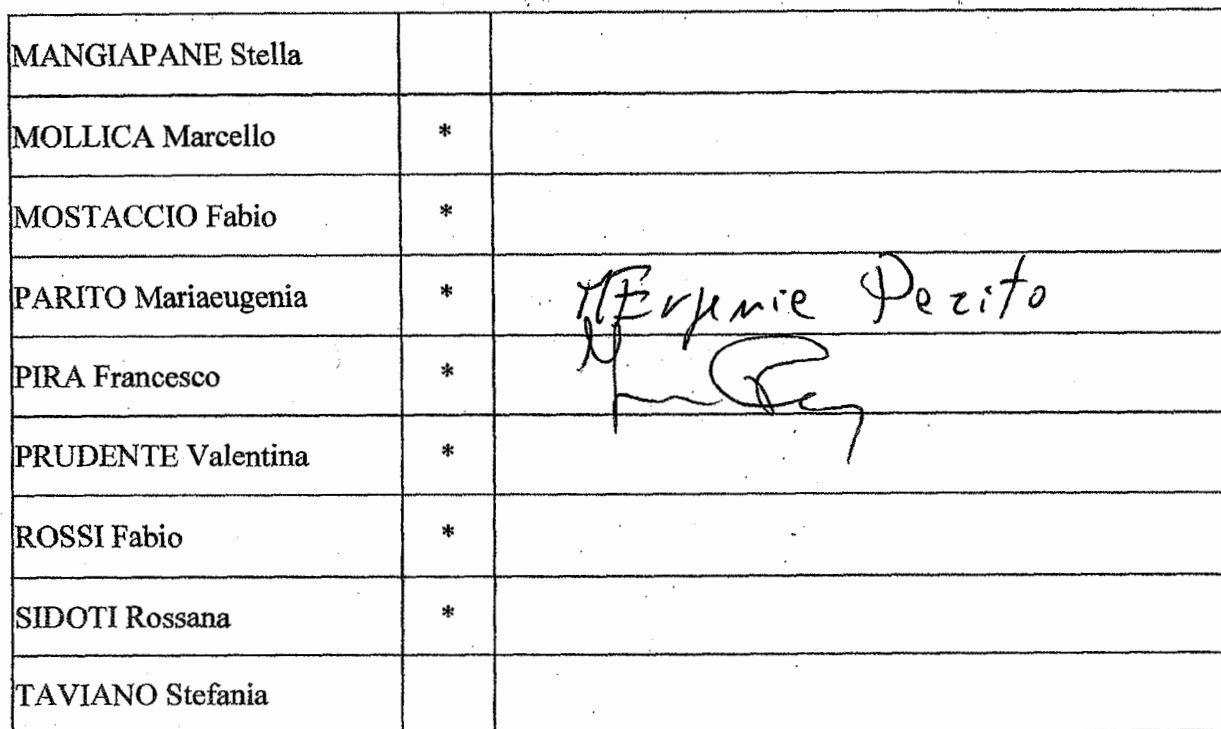 MANGIAPANE Stella
MOLLICA Marcello *
MOSTACCIO Fabio *
PARITO Mariaeugenia * MEugenia Parito
PIRA Francesco *
PRUDENTE Valentina *
ROSSI Fabio *
SIDOTI Rossana *
TAVIANO Stefania